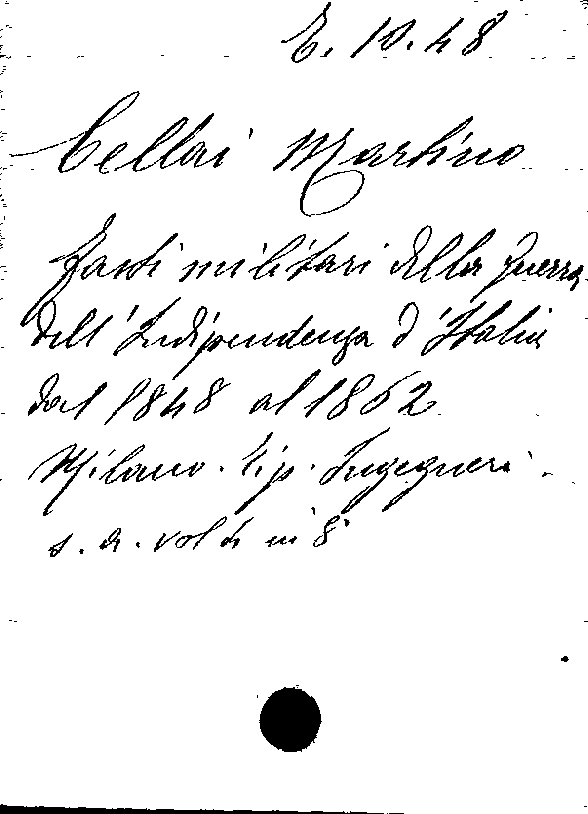 E. 10. 48
Cellai Martino
Fasti militari della guerra
dell'Indipendenza d'Italia
dal 1848 al 1862
Milano. Tip. Ingegneri.
s. a. vol 4 in 8°